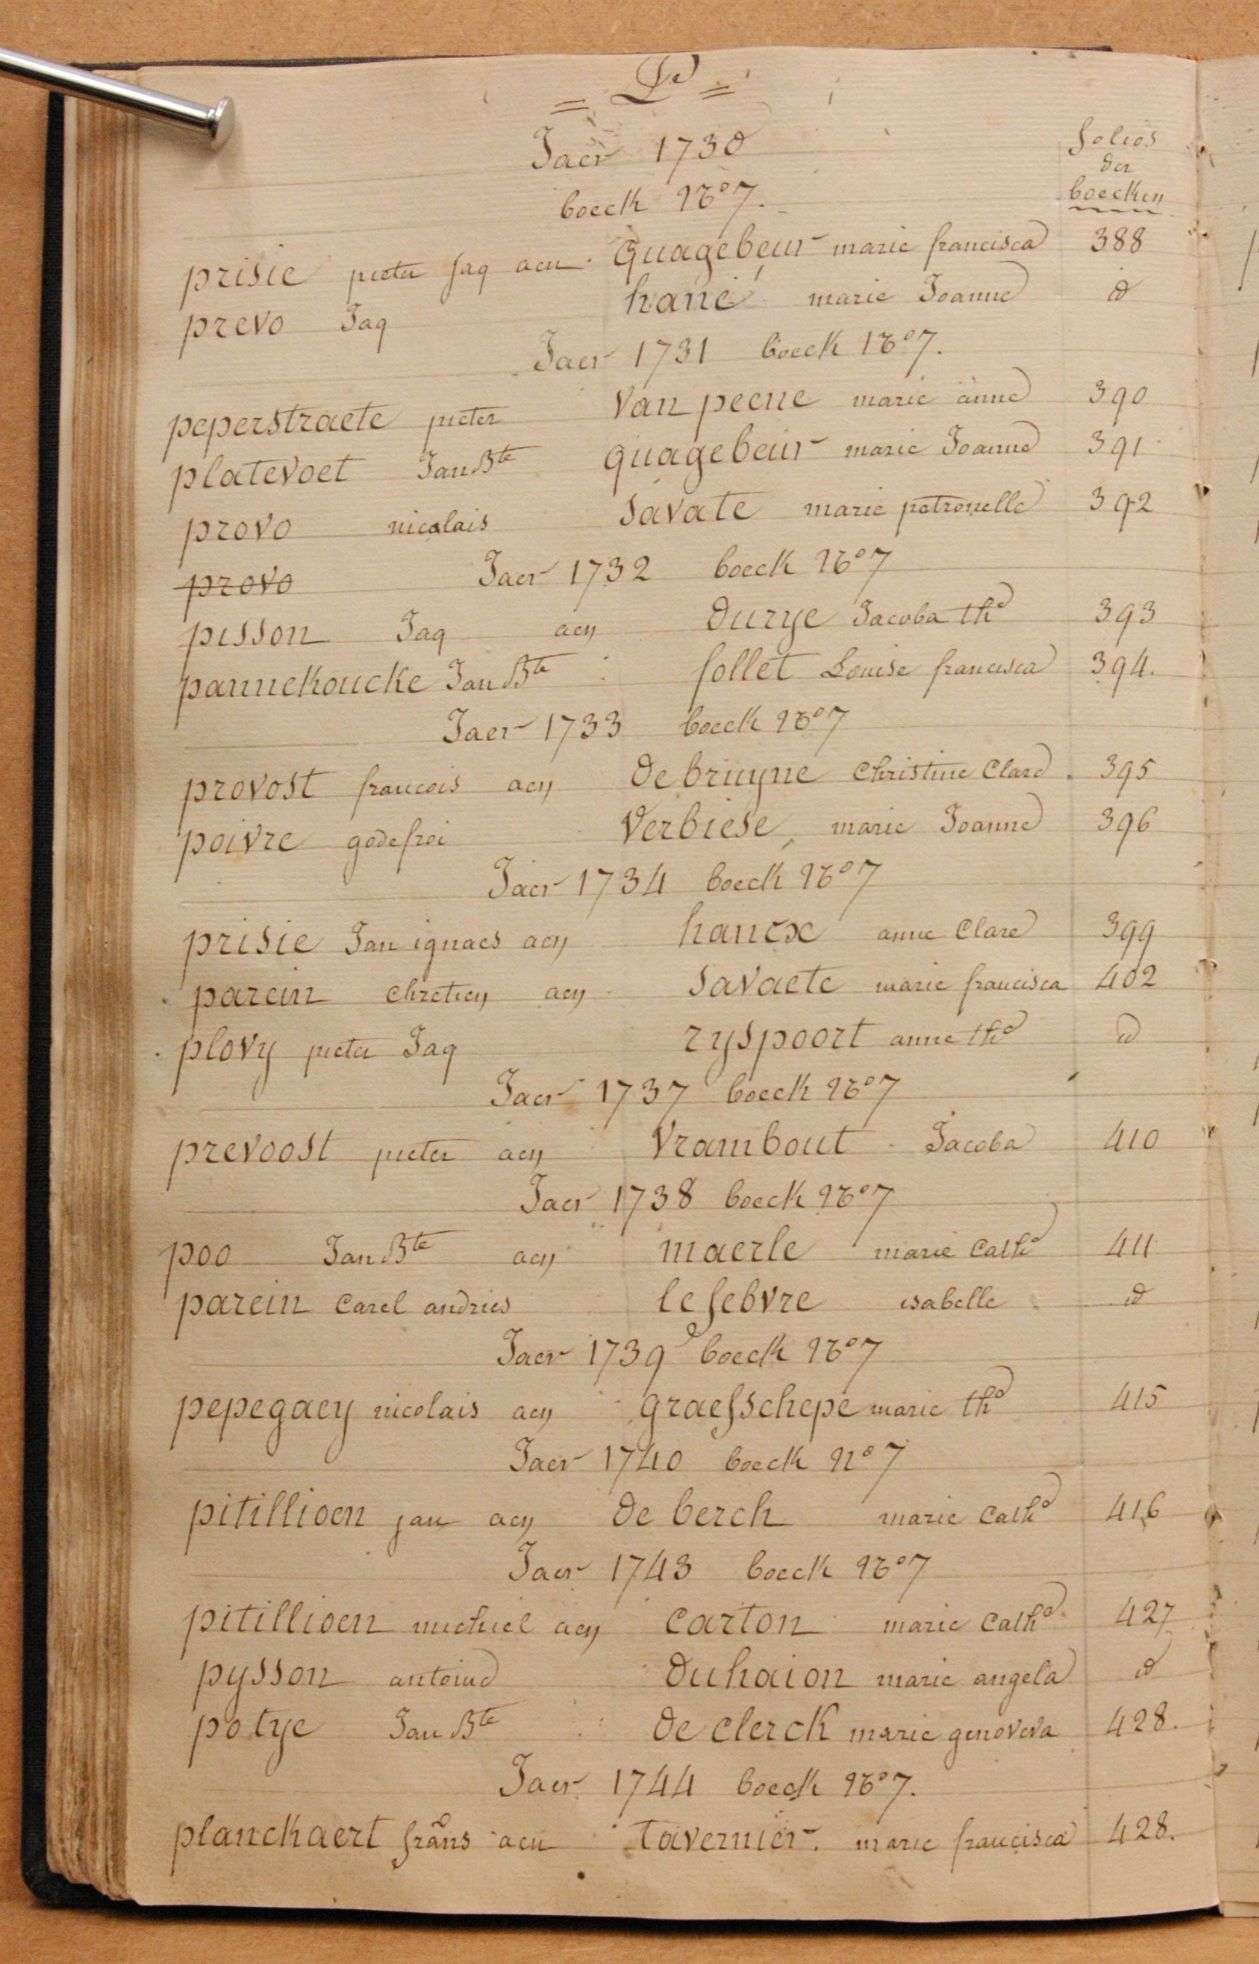 = P =
Jaer 1730 folios
der
boeck No 7. boecken
prisie pieter jaq aen quagebeur marie francisca 388
prevo Jaq hane marie Joanne id
Jaer 1731 boeck No 7.
peperstraete pieter van peene marie anne 390
platevoet Jan Bte quagebeur marie Joanne 391
provo nicolais savate marie petronelle 392
provo Jaer 1732 boeck No 7
pisson Jaq aen durye Jacoba tha 393
pannekoucke Jan Bte follet Louise francisca 394.
Jaer 1733 boeck No 7
provost francois aen de bruyne Christine Clare 395
poivre godefroi verbiese marie Joanne 396
Jaer 1734 boeck No 7
prisie Jan ignaes aen hancx anne Clare 399
parein chretien aen savaete marie francisca 402
plovy pieter Jaq ryspoort anne tha id
Jaer 1737 boeck No 7
prevoost pieter aen vrambout Jacoba 410
Jaer 1738 boeck No 7
poo Jan Bte aen maerle marie Catha 411
parein Carel andries lefebvre isabelle id
Jaer 1739 boeck No 7
pepegaey nicolais aen graefschepe marie tha 415
Jaer 1740 boeck No 7
pitillioen jan aen de berch marie Catha 416
Jaer 1743 boeck No 7
pitillioen michiel aen carton marie Catha 427
pysson antoine duhaion marie angela id
potye Jan Bte de clerck marie genoveva 428.
Jaer 1744 boeck No 7.
planckaert frans aen tavernier. marie francisca 428.